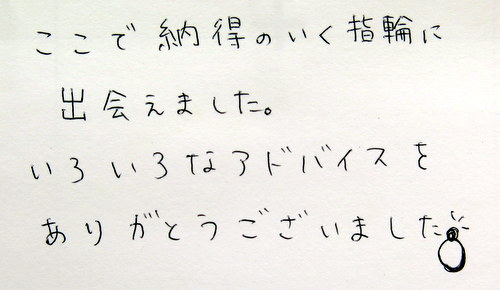 ここで納得のいく指輪に
出会えました。
いろいろなアドバイスを
ありがとうございました